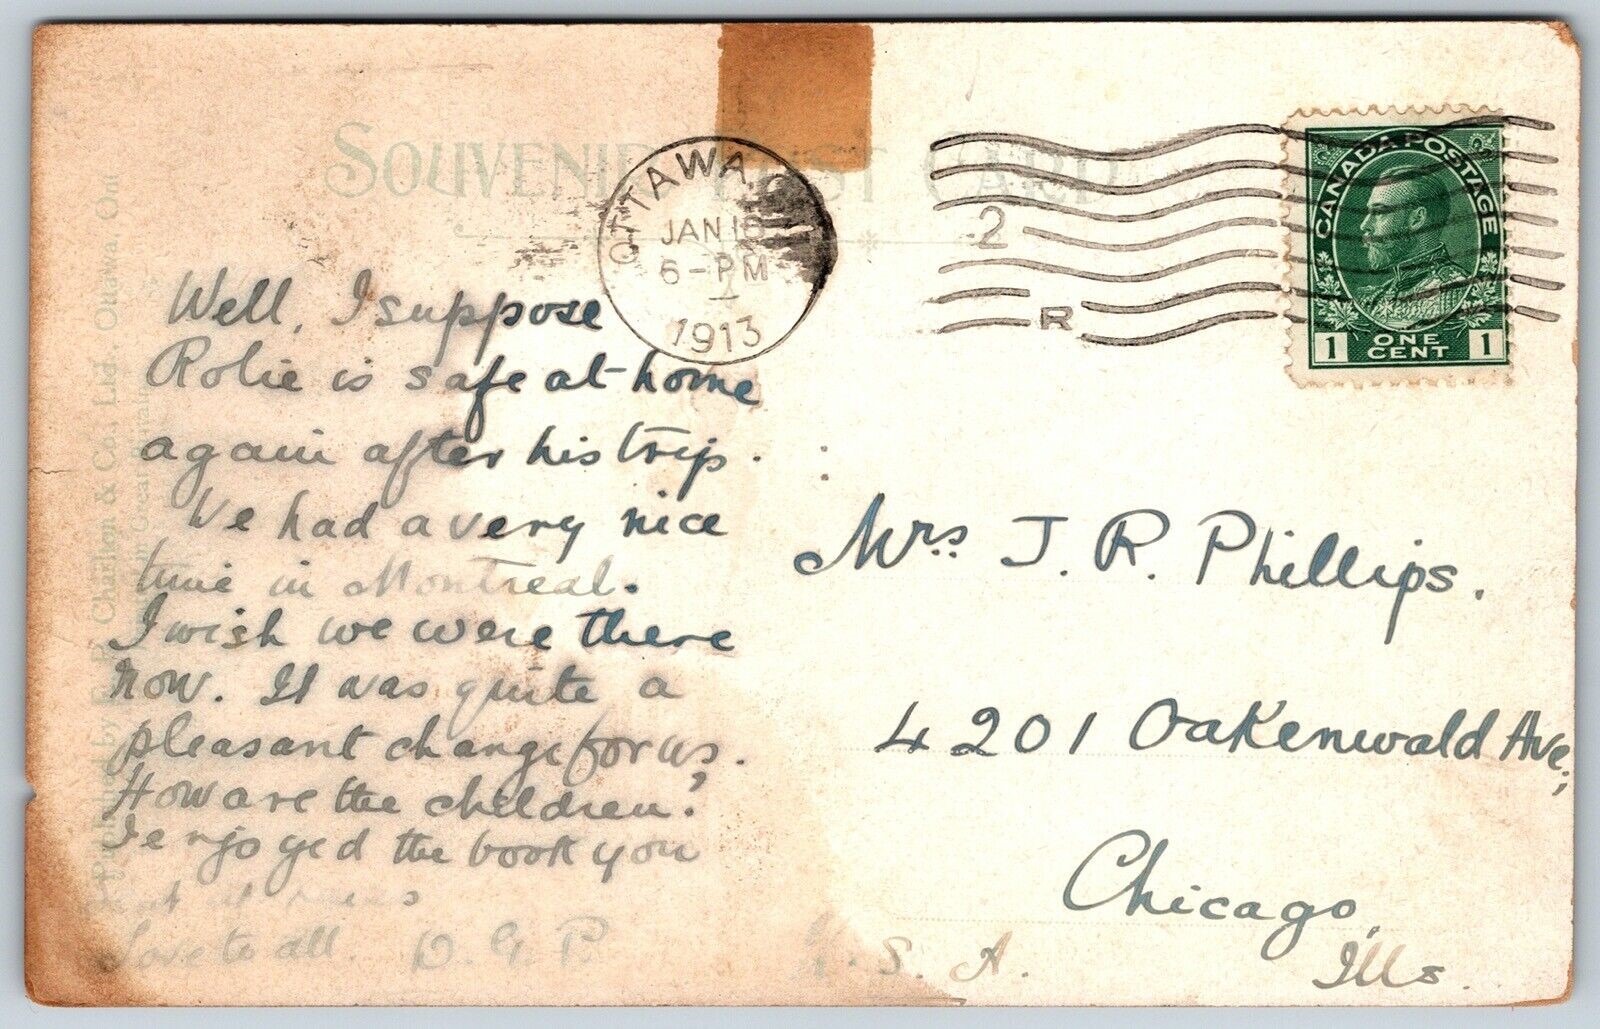 SOUVENIR POST CARD
OTTAWA
JAN 16
6-PM
1913
2
R
CANADA POSTAGE
1 ONE CENT 1
Well, I suppose
Rolie is safe at home
again after his trip.
We had a very nice
time in Montreal.
I wish we were there
now. It was quite a
pleasant change for us.
How are the children?
I enjoyed the book you
at
Love to all. D. G. P.
Mrs. J. R. Phillips.
4201 Oakenwald Ave,
Chicago,
Ills.
U. S. A.
Published by Charlton & Co., Ltd., Ottawa, Ont
in Great Britain